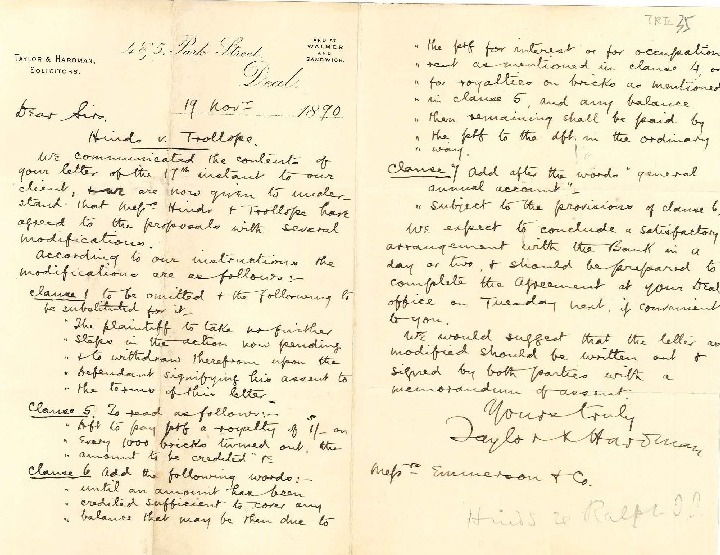 TAYLOR & HARDMAN,
SOLICITORS.
4 & 5, Park Street,
Deal,
AND AT
WALMER
AND
SANDWICH.
19 Novr 1890
Dear Sirs,
Hinds v. Trollope.
We communicated the contents of
your letter of the 17th instant to our
client, & are now given to under-
stand that Messrs Hinds & Trollope have
agreed to the proposals with several
modifications.
According to our instructions the
modifications are as follows:-
Clause 1 to be omitted & the following to
be substituted for it-
"The plaintiff to take no further
" steps in the action now pending
" & to withdraw therefrom upon the
" Defendant signifying his assent to
" the terms of this letter"
Clause 5. To read as follows:-
" Dft to pay ptf a royalty of 5/- on
" every 1000 bricks turned out, the
" amount to be credited" &c
Clause 6 Add the following words:-
" until an amount has been
" credited sufficient to cover any
" balance that may be then due to
TRI 35
" the ptf for interest or for occupation
" rent as mentioned in clause 4, or
" for royalties on bricks as mentioned
" in clause 5, and any balance
" then remaining shall be paid by
" the ptf to the dft. in the ordinary
" way.
Clause 7 Add after the words "general
annual account"-
" subject to the provisions of clause 6.
We expect to conclude a satisfactory
arrangement with the Bank in a
day or two, & should be prepared to
complete the Agreement at your Deal
office on Tuesday next, if convenient
to you.
We would suggest that the letter as
modified should be written out &
signed by both parties with a
memorandum of assent.
Yours truly
Taylor & Hardman
Messrs Emmerson & Co.
Hinds re Ralph